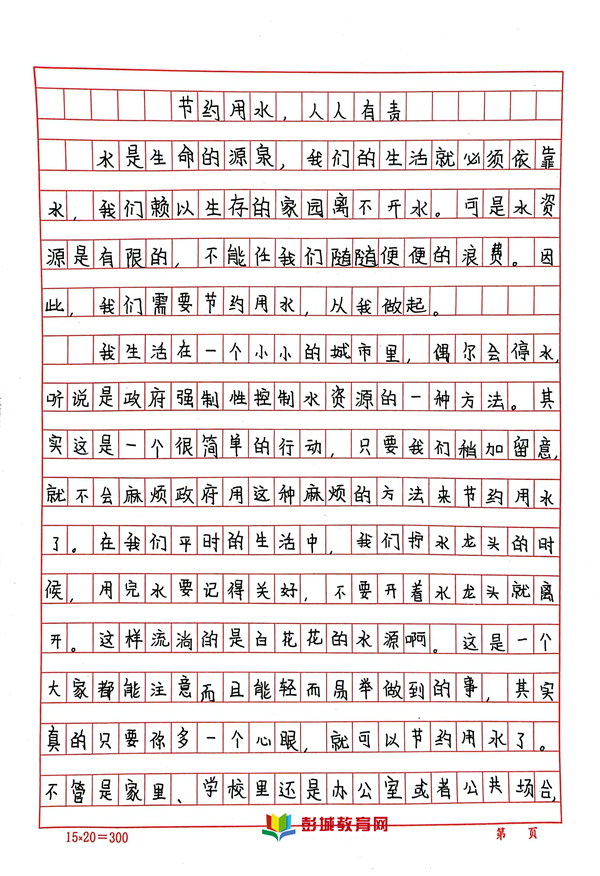 节约用水，人人有责
水是生命的源泉，我们的生活就必须依靠
水，我们赖以生存的家园离不开水。可是水资
源是有限的，不能任我们随随便便的浪费。因
此，我们需要节约用水，从我做起。
我生活在一个小小的城市里，偶尔会停水，
听说是政府强制性控制水资源的一种方法。其
实这是一个很简单的行动，只要我们稍加留意，
就不会麻烦政府用这种麻烦的方法来节约用水
了。在我们平时的生活中，我们拧水龙头的时
候，用完水要记得关好，不要开着水龙头就离
开。这样流淌的是白花花的水源啊。这是一个
大家都能注意而且能轻而易举做到的事，其实
真的只要你多一个心眼，就可以节约用水了。
不管是家里、学校里还是办公室或者公共场合，
15×20=300
彭城教育网
第 页